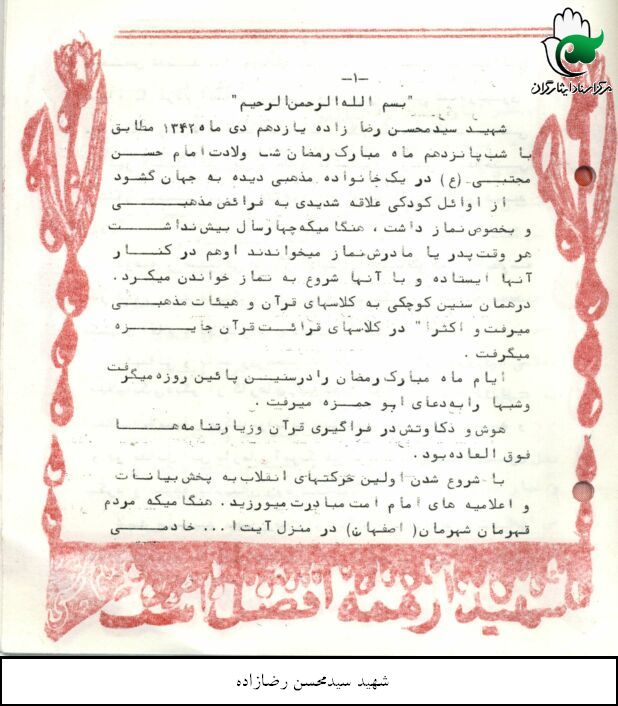 مرکز اسناد ایثارگران
-۱-
"بسم الله الرحمن الرحیم"
شهید سیدمحسن رضا زاده یازدهم دی ماه ۱۳۴۲ مطابق
با شب پانزدهم ماه مبارک رمضان شب ولادت امام حسن
مجتبی (ع) در یک خانواده مذهبی دیده به جهان گشود
از اوائل کودکی علاقه شدیدی به فرائض مذهبی
و بخصوص نماز داشت ، هنگامیکه چهار سال بیش نداشت
هر وقت پدر یا مادرش نماز میخواندند او هم در کنار
آنها ایستاده و با آنها شروع به نماز خواندن میکرد .
در همان سنین کوچکی به کلاسهای قرآن و هیئات مذهبی
میرفت و اکثرا" در کلاسهای قرائت قرآن جایزه
میگرفت .
ایام ماه مبارک رمضان را در سنین پائین روزه میگرفت
و شبها را به دعای ابو حمزه میرفت .
هوش و ذکاوتش در فراگیری قرآن و زیارتنامه ها
فوق العاده بود .
با شروع شدن اولین حرکتهای انقلاب به پخش بیانات
و اعلامیه های امام امت مبادرت میورزید . هنگامیکه مردم
قهرمان شهرمان ( اصفهان ) در منزل آیت ا ... خادمی
شهید از همه افضل است
شهید سیدمحسن رضازاده